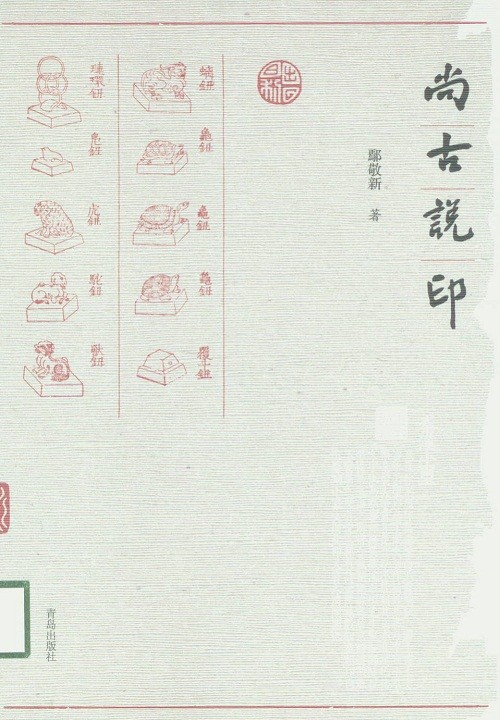 尚古說印
鄢敬新 著
螭鈕
龜鈕
龜鈕
龜鈕
覆斗鈕
連環鈕
鳧鈕
虎鈕
駝鈕
獸鈕
青岛出版社